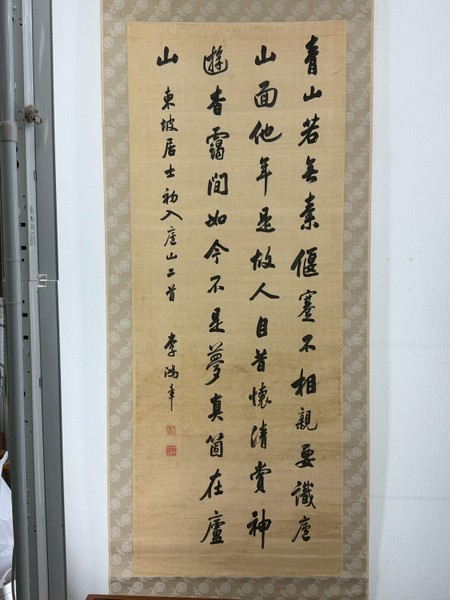 青山若無素偃蹇不相親要識廬
山面他年是故人自昔懷清賞神
遊杳靄間如今不是夢真箇在廬
山
東坡居士初入廬山二首
李鴻章